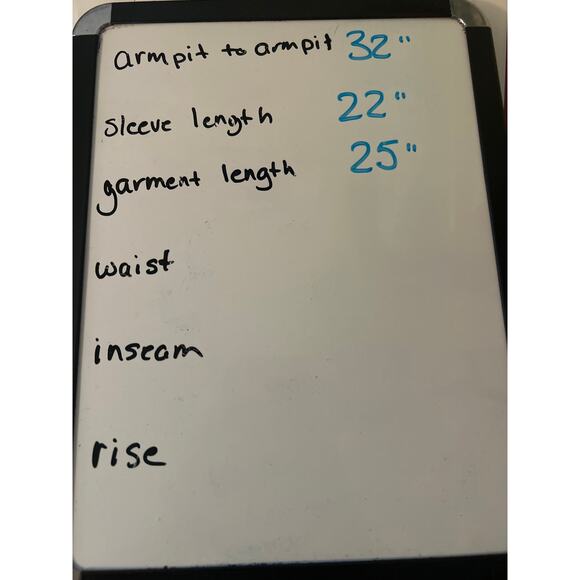 armpit to armpit 32"
sleeve length 22"
garment length 25"
waist
inseam
rise